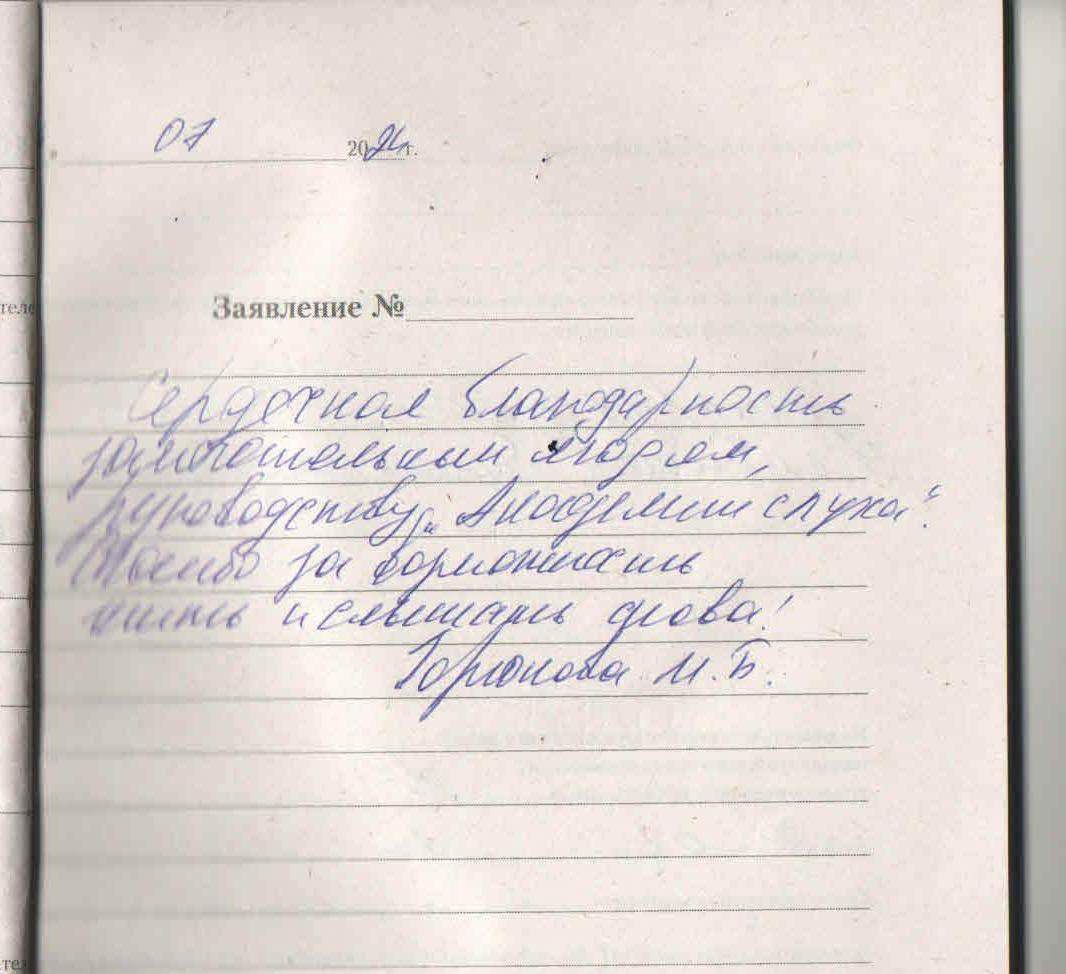 07 2024 г.
Заявление №
Сердечная благодарность
замечательным людям,
руководству „Академии слуха“.
Спасибо за возможность
жить и слышать снова!
М.Б.